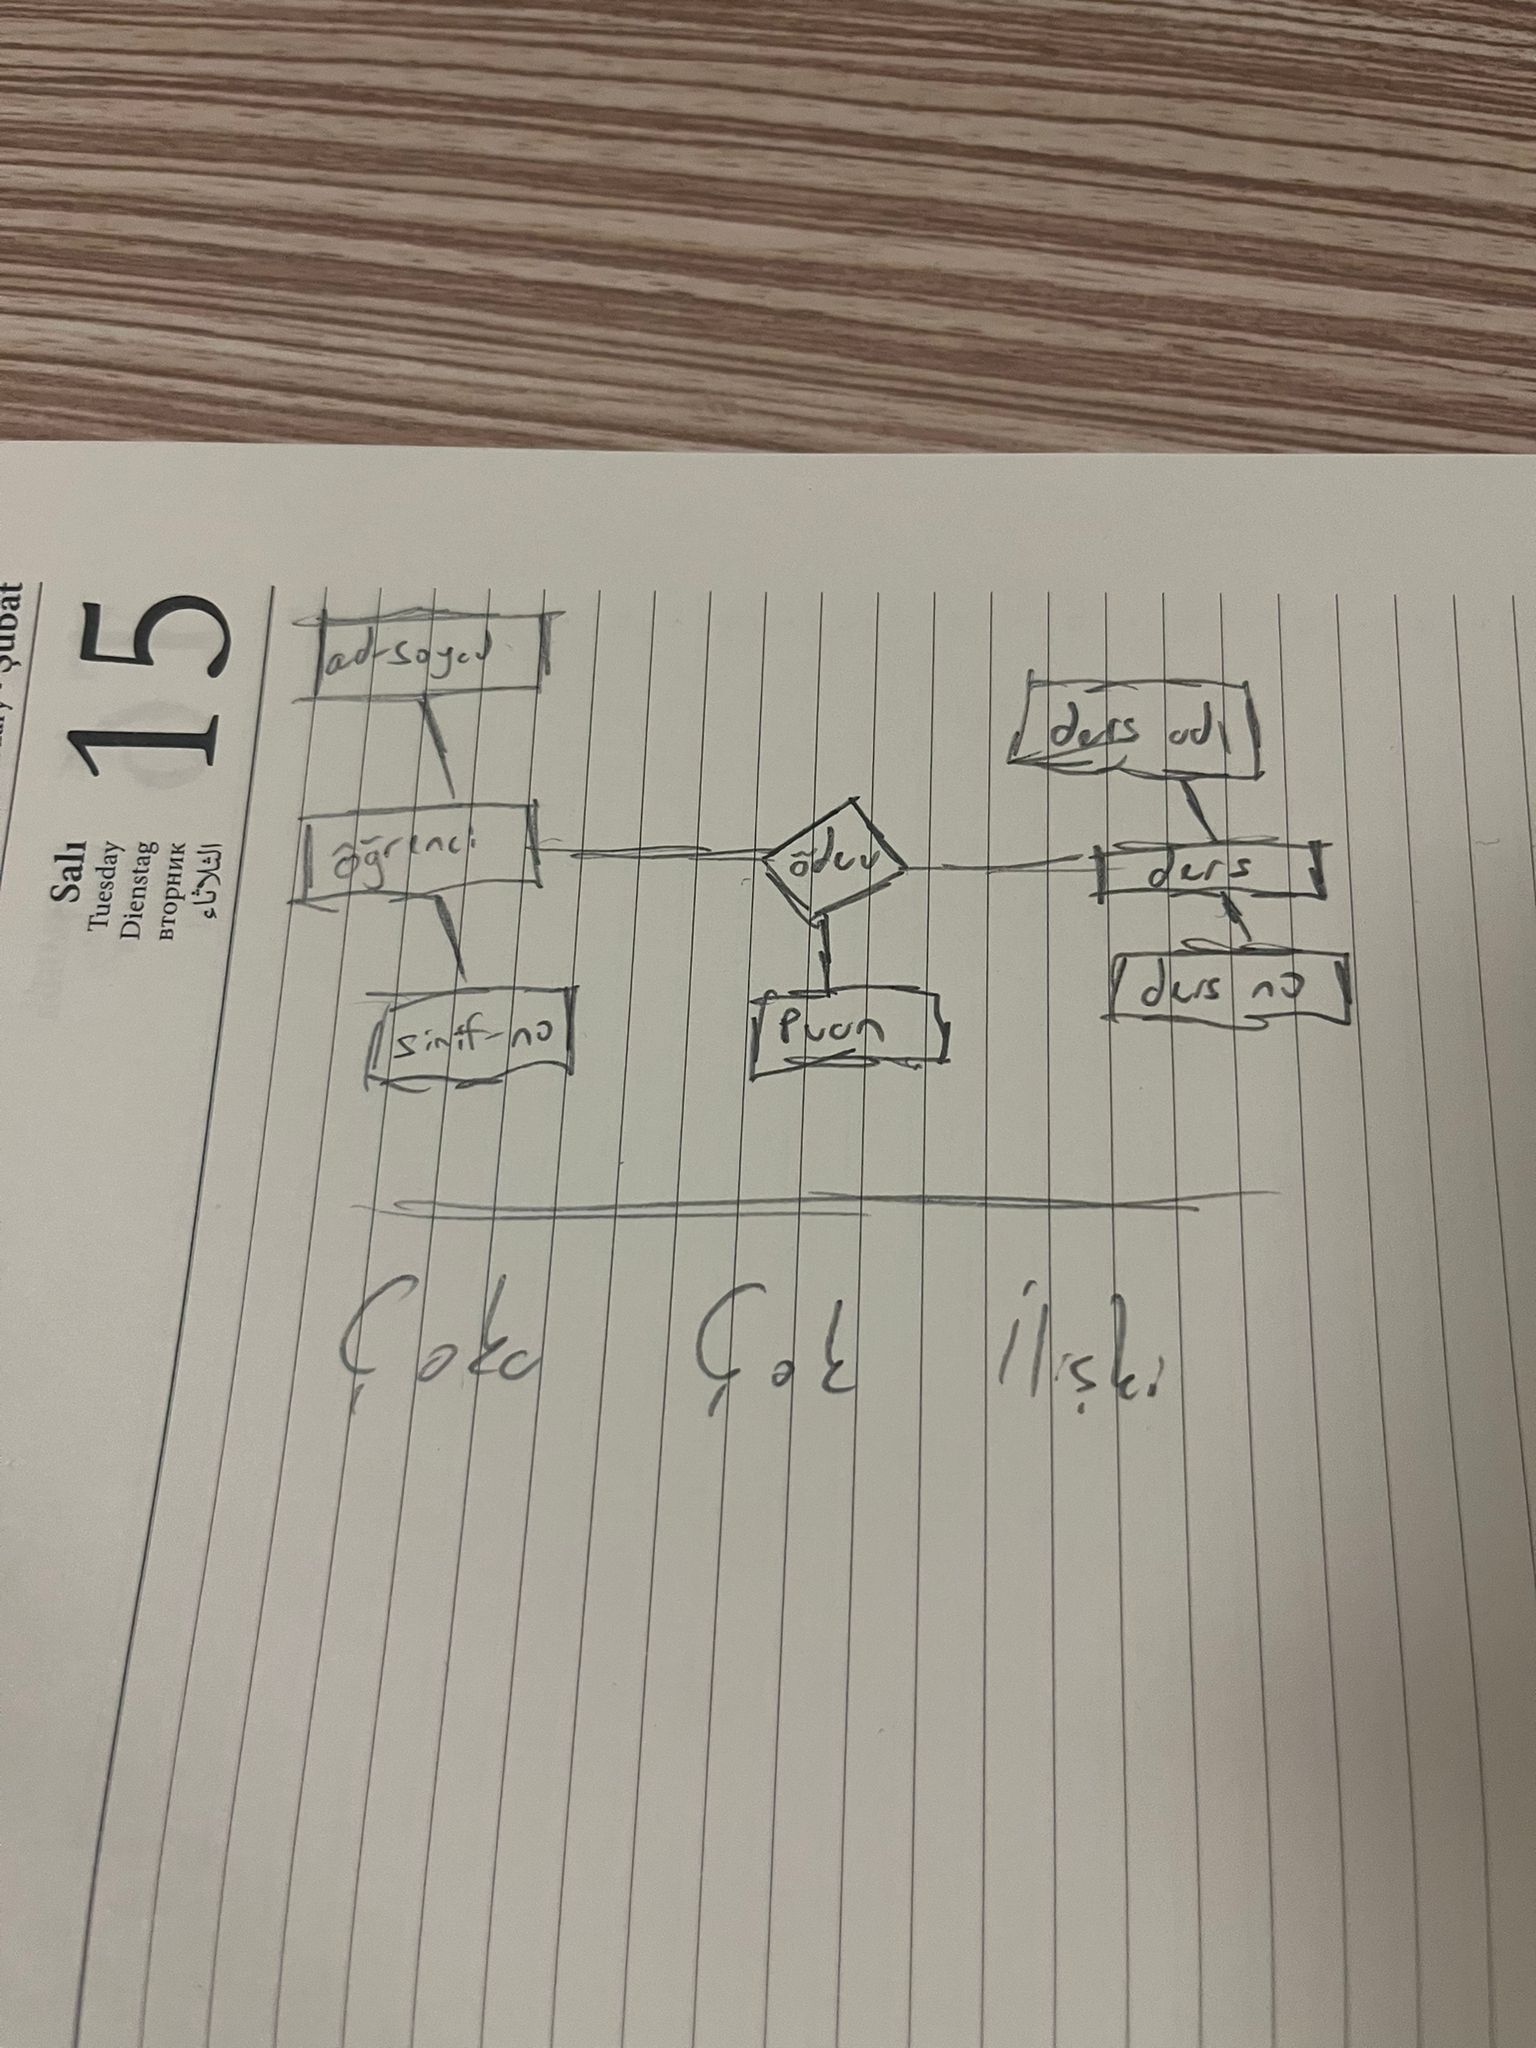 Şubat
15
Salı
Tuesday
Dienstag
вторник
الثلاثاء
ad-soyad
öğrenci
sinif-no
ödev
Puan
ders adı
ders
ders no
Çoka Çok İlişki